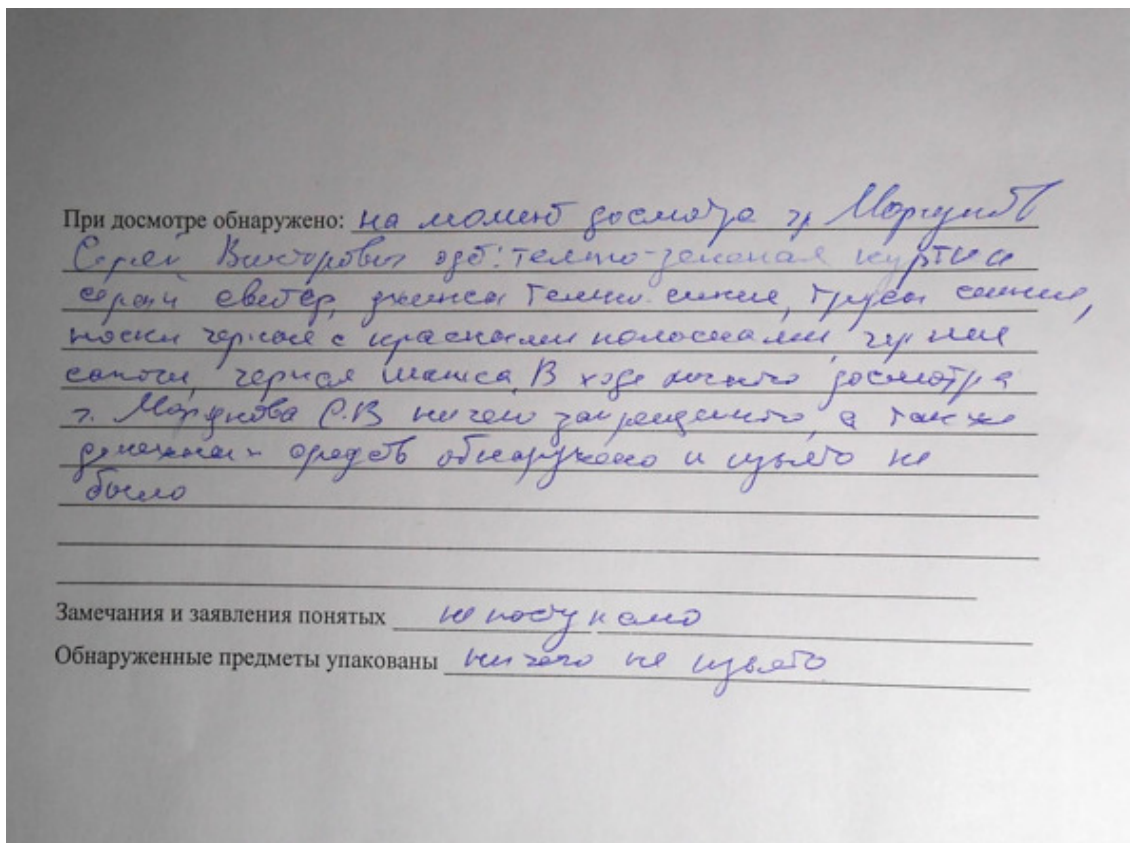 При досмотре обнаружено: на момент досмотра гр Моргунов
Сергей Викторович одет: темно-зеленая куртка
серый свитер, джинсы темно-синие, трусы синие,
носки черные с красными полосками, черные
сапоги, черная шапка. В ходе личного досмотра
г. Моргунова С.В ничего запрещенного, а также
денежных средств обнаружено и изъято не
было
Замечания и заявления понятых не поступало
Обнаруженные предметы упакованы ничего не изъято